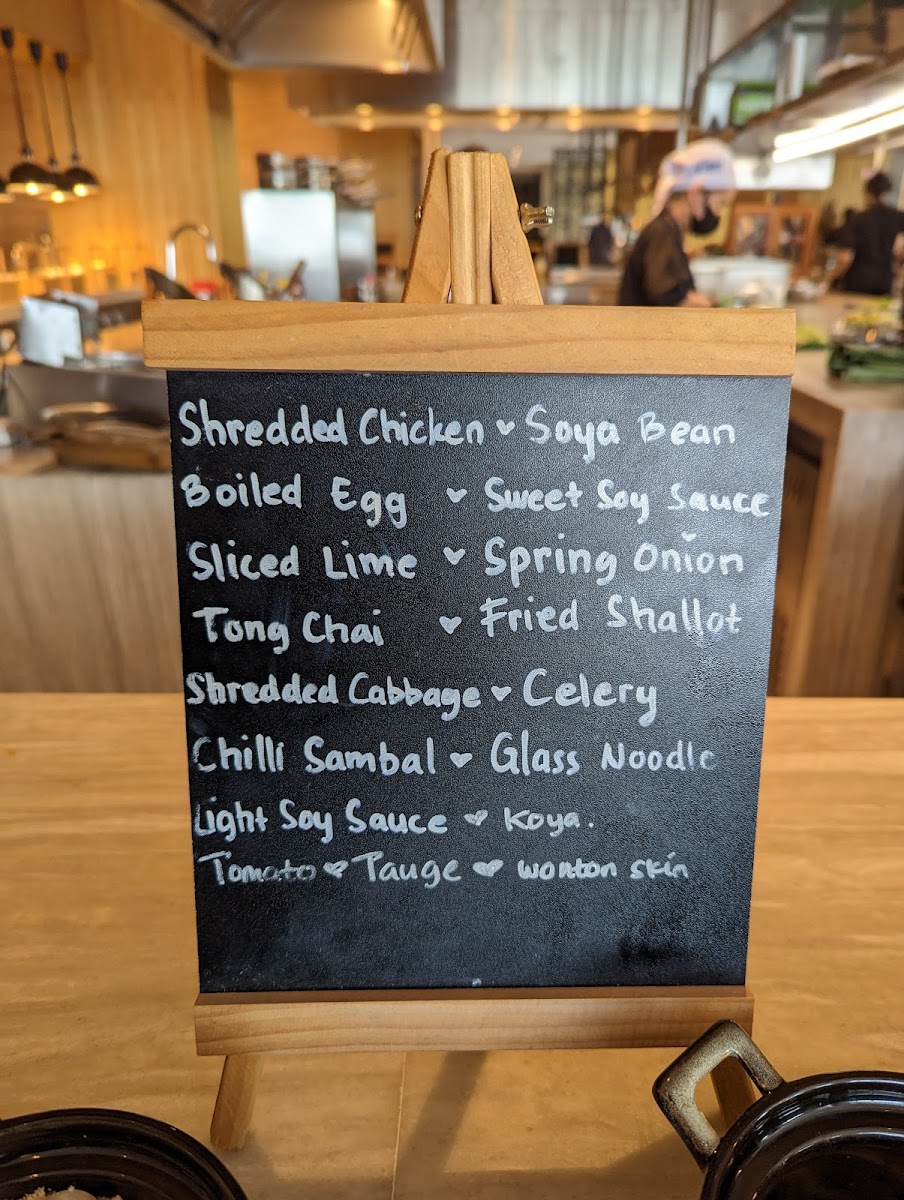 Shredded Chicken ♥ Soya Bean
Boiled Egg ♥ Sweet Soy Sauce
Sliced Lime ♥ Spring Onion
Tong Chai ♥ Fried Shallot
Shredded Cabbage ♥ Celery
Chilli Sambal ♥ Glass Noodle
Light Soy Sauce ♥ Koya.
Tomato ♥ Tauge ♥ Wonton skin